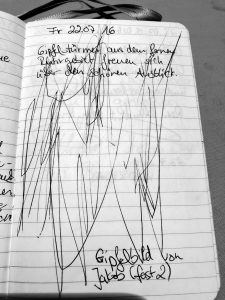 Fr 22.07.16
Gipfelstürmer aus dem fernen
Ruhrgebiet freuen sich
über den schönen Ausblick.
Gipfelbild von
Jakob (fast 2)